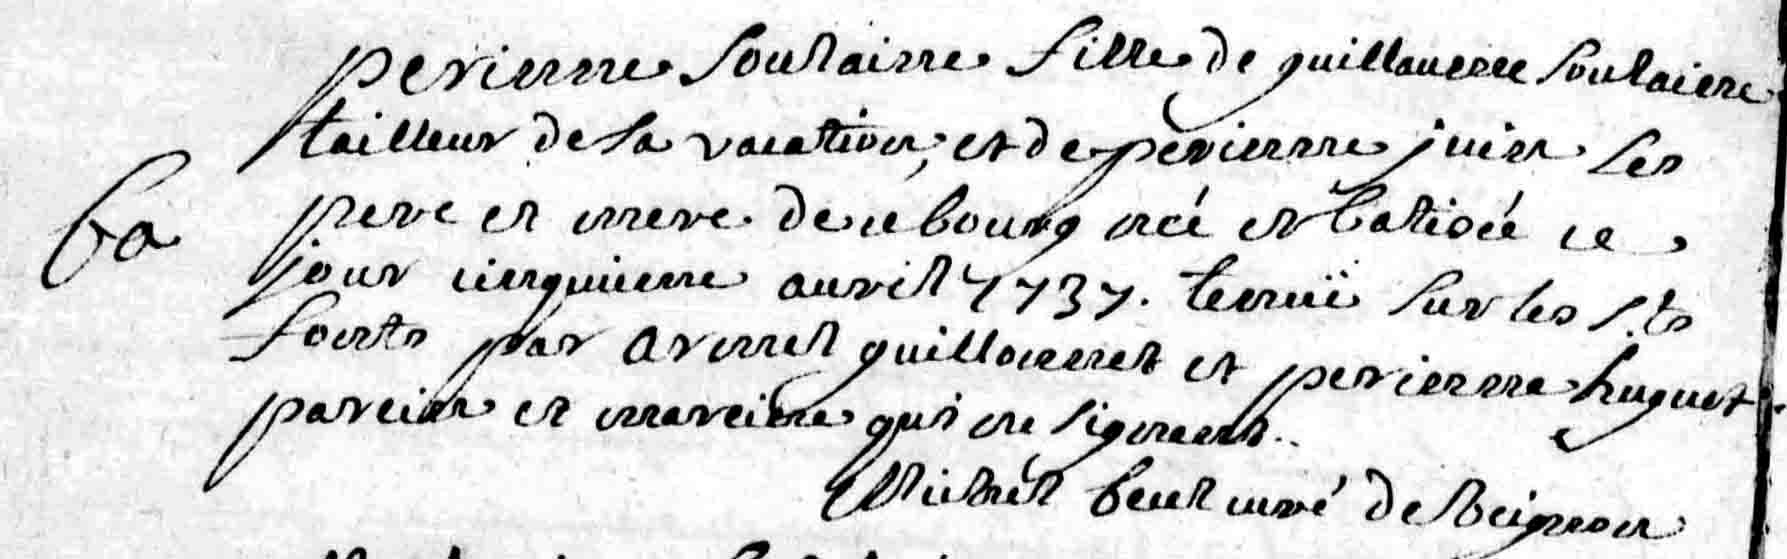 perienne Soulaine fille de guillaume Soulaine
tailleur de sa vacation, et de perienne juin Ses
ba
pere et mere de ce bourg née et batisée ce
jour cinquieme auvril 1737. tenuë sur les S.ts
fonts par armel guillaumet et perienne huguet
parein et mareine qui ne signent..
Michel curé de Beignon